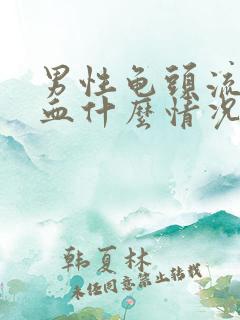 男性龟頭流
血什麼情况
韩夏林
未经同意禁止转载